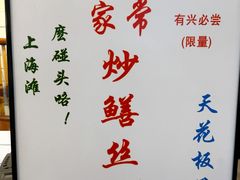 家常
炒鳝丝
有兴必尝
(限量)
上海滩
麽碰头咯！
天花板